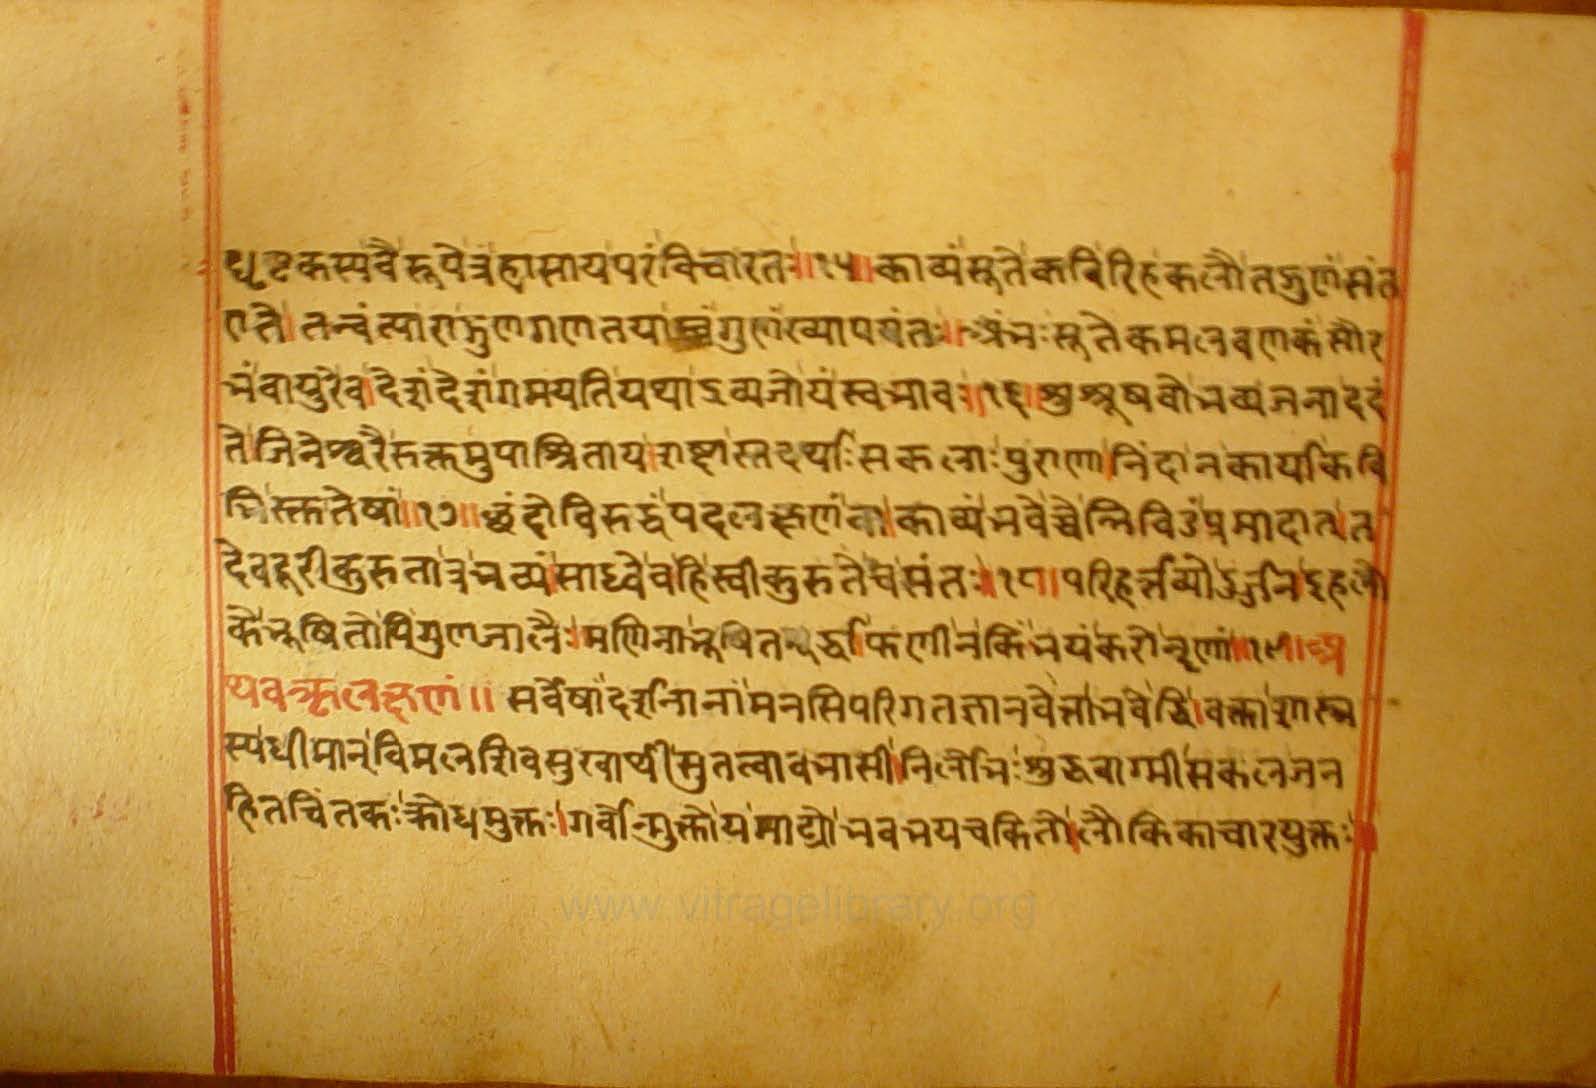 धृष्टकस्य वै सूपेत्रं हासाय परं विचारतः॥१५॥काव्यं सूते कविरिह कलौ तद्गुणं संत
एते।तन्वंत्यारागुणगणतया स्वं गुणं ख्यापयंतः।अंभः सूते कमलवणकं सौर
भं वायुरेव।देशं देशं गमयति यथाऽव्यजोयं स्वभावः॥१६॥शुश्रूषवो भव्यजना वदं
ते जिनेश्वरैरुक्तमुपाश्रिताय।राष्टास्तदर्थाः सकलाः पुराणा।निंदा न कार्या कवि
भिस्तु तेषां॥१७॥छंदोविरुद्धं पदलक्षणं वा।काव्यं भवेच्चेन्निविडं प्रमादात्।त
देव दूरीकुरुतात्र भव्यं।साध्वेव हि स्वीकुरुतेच संतः॥१८॥परिहर्त्तव्यो दुर्जन इह लो
के भूषितोपि गुणजालैः।मणिना भूषितमूर्द्धा फणी न किं भयंकरो नॄणां॥१९॥अ
थ वक्तृलक्षणं॥ सर्वेषां दर्शनानां मनसि परिगतज्ञानवेत्ता भवेद्धि।वक्ता शास्त्र
स्य धीमान् विमलशिवसुखार्थी सुतत्वावभासी।निर्लोभः शुद्धवाग्मी सकलजन
हितचिंतकः क्रोधमुक्तः।गर्वोन्मुक्तो यमाढ्यो भवभयचकितो।लौकिकाचारयुक्तः
www.vitragelibrary.org